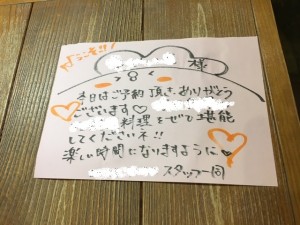 ようこそ!!
様
本日はご予約頂き、ありがとう
ございます♡
料理をぜひ堪能
してくださいネ!!
楽しい時間になりますように♡
スタッフ一同